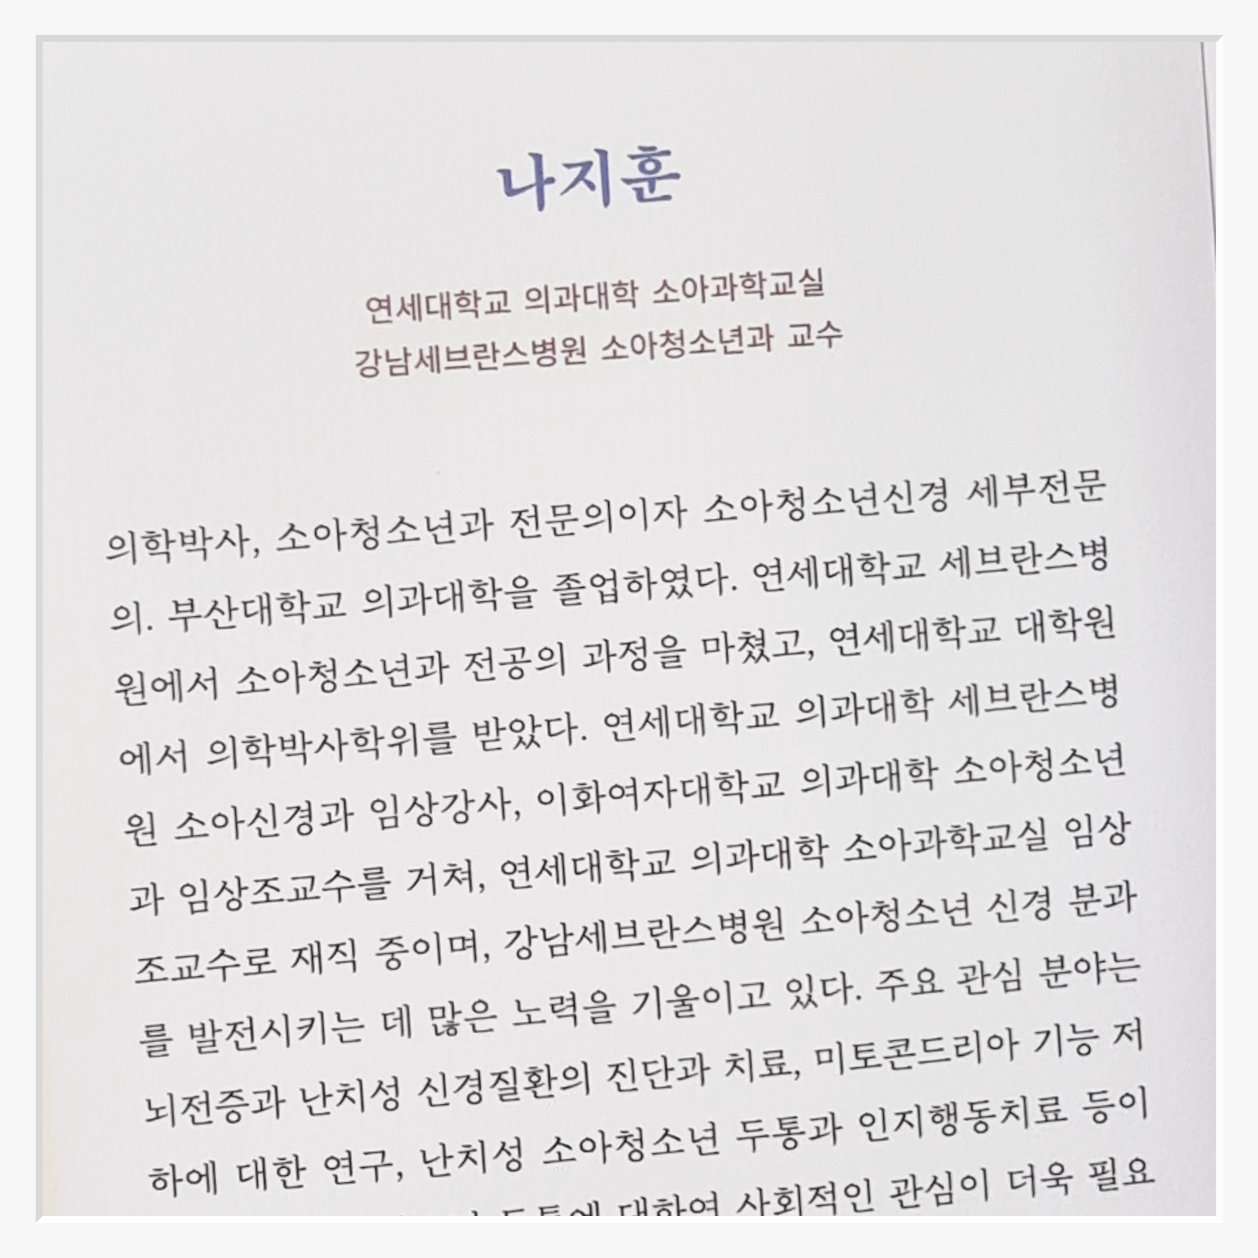 나지훈
연세대학교 의과대학 소아과학교실
강남세브란스병원 소아청소년과 교수
의학박사, 소아청소년과 전문의이자 소아청소년신경 세부전문
의. 부산대학교 의과대학을 졸업하였다. 연세대학교 세브란스병
원에서 소아청소년과 전공의 과정을 마쳤고, 연세대학교 대학원
에서 의학박사학위를 받았다. 연세대학교 의과대학 세브란스병
원 소아신경과 임상강사, 이화여자대학교 의과대학 소아청소년
과 임상조교수를 거쳐, 연세대학교 의과대학 소아과학교실 임상
조교수로 재직 중이며, 강남세브란스병원 소아청소년 신경 분과
를 발전시키는 데 많은 노력을 기울이고 있다. 주요 관심 분야는
뇌전증과 난치성 신경질환의 진단과 치료, 미토콘드리아 기능 저
하에 대한 연구, 난치성 소아청소년 두통과 인지행동치료 등이
두통에 대하여 사회적인 관심이 더욱 필요